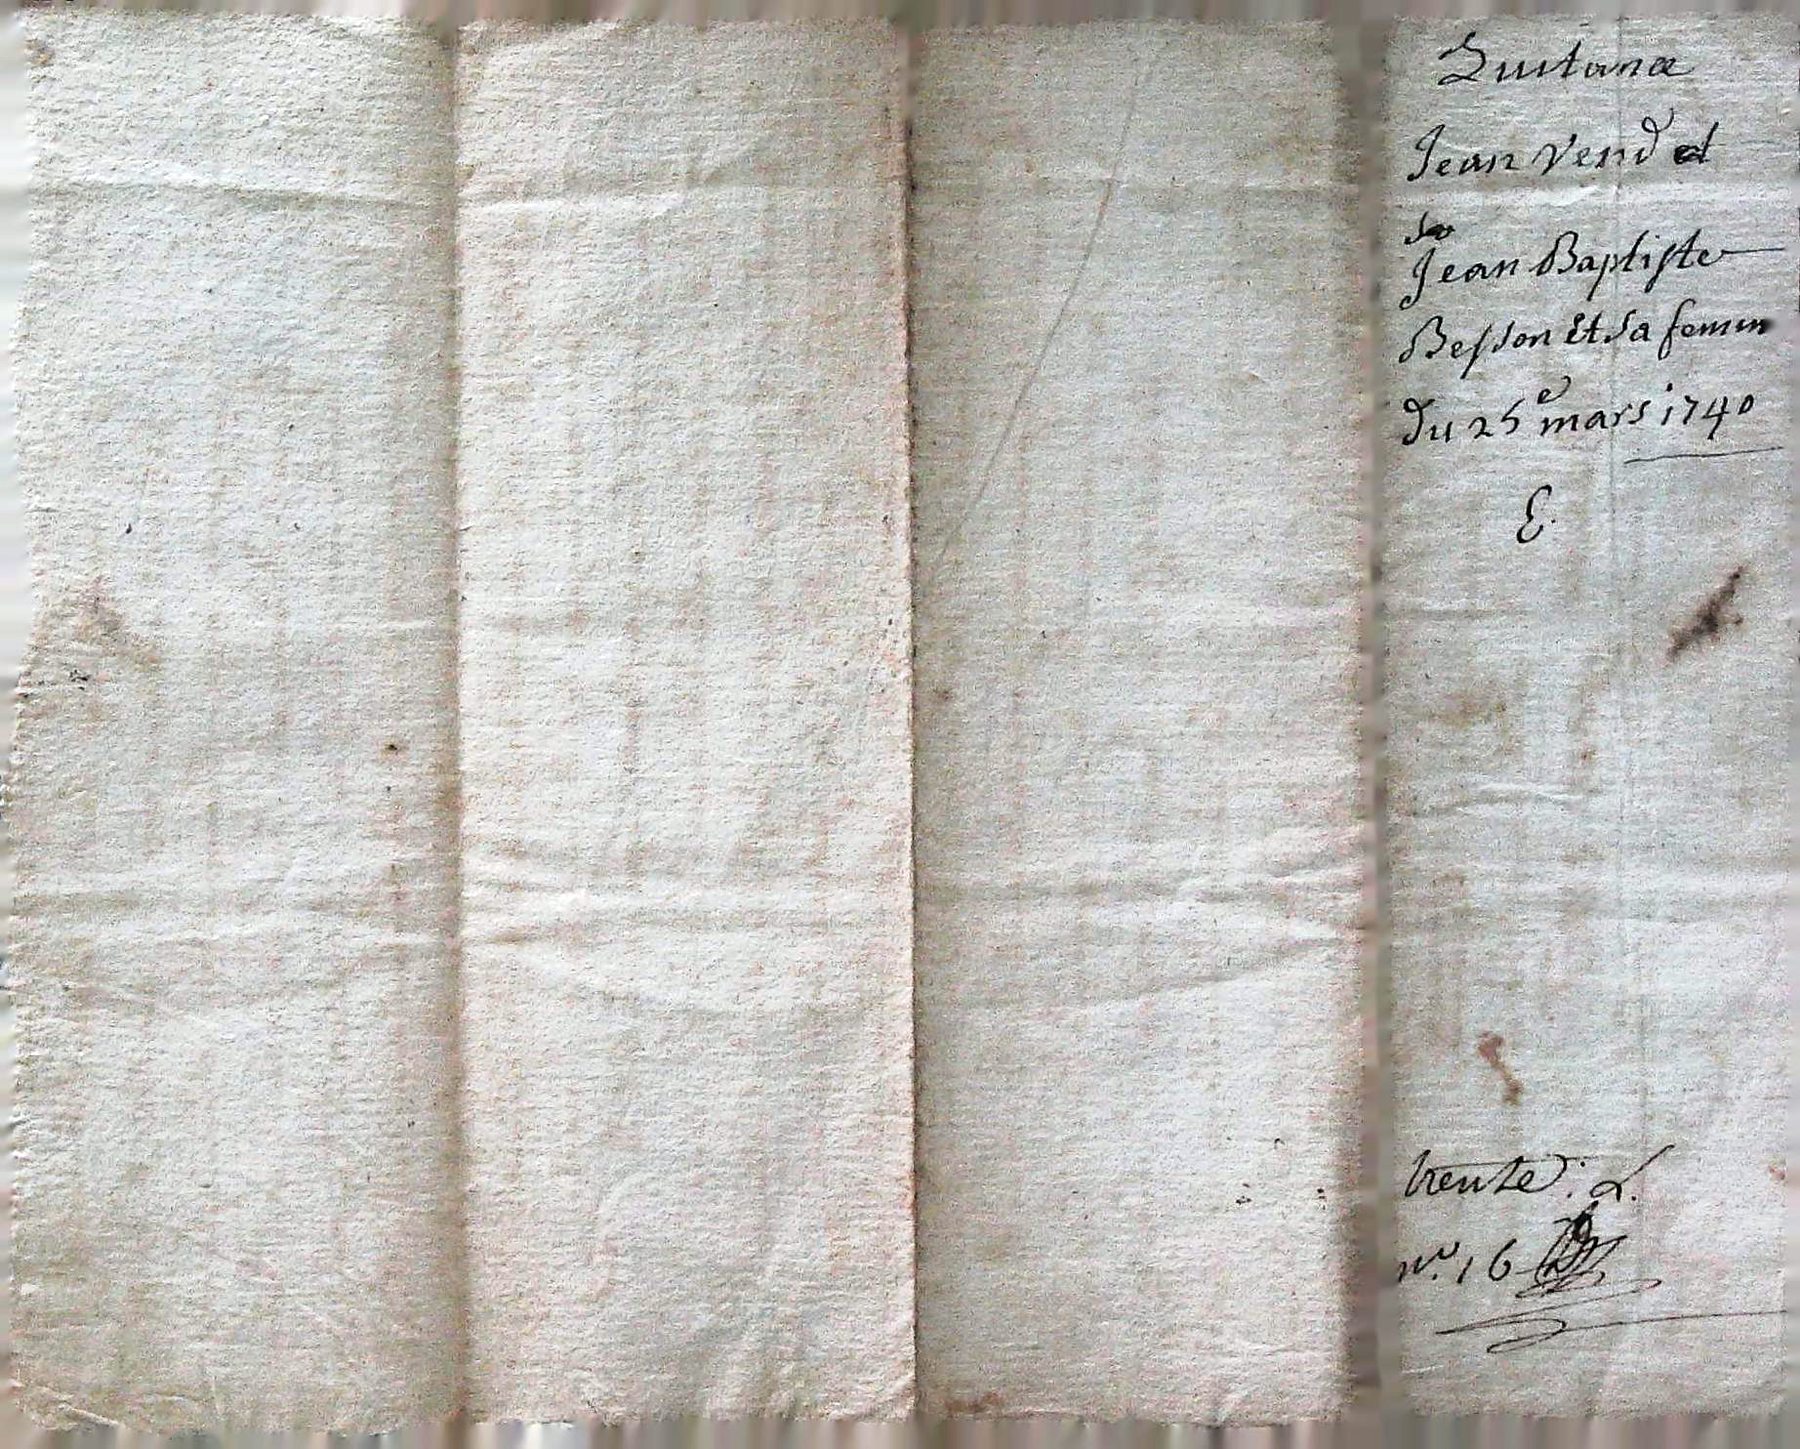 Quitance
Jean Vend et
Jean Baptiste
Besson Et sa femm
du 25e mars 1740
E.
trente. L.
n°. 16